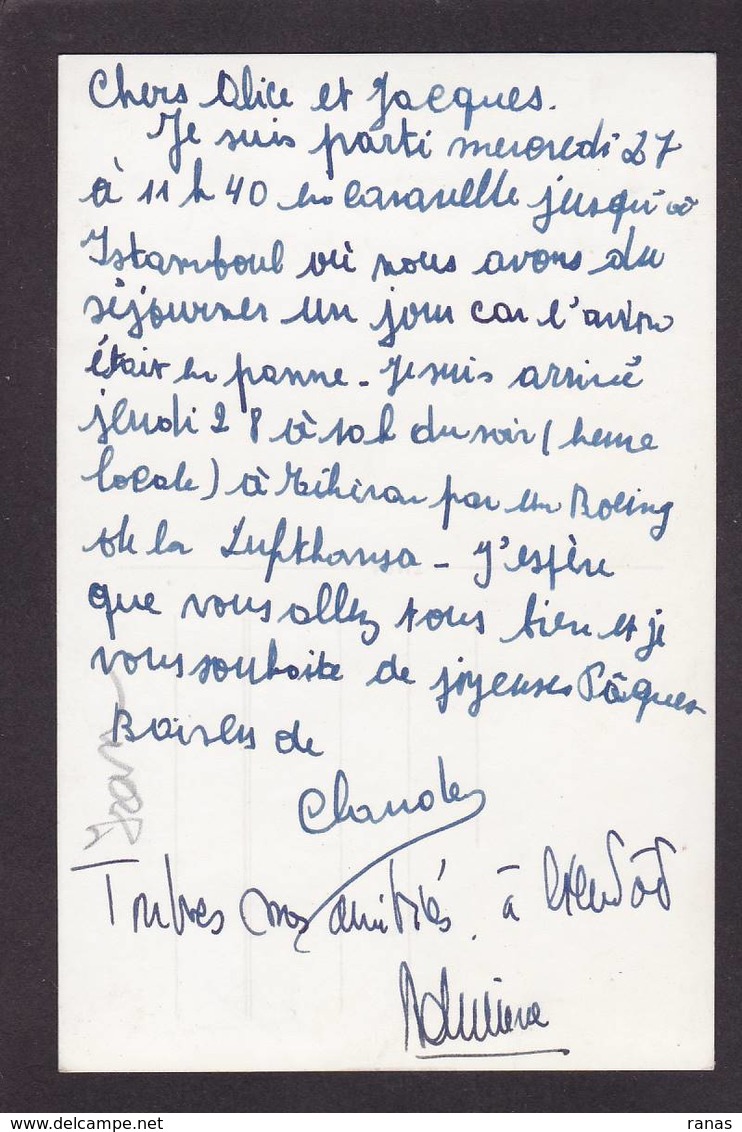 Chers Alice et Jacques.
Je suis parti mercredi 27
à 11 h 40 en caravelle jusqu'à
Istamboul où nous avons du
séjourner un jour car l'avion
était en panne - Je suis arrivé
jeudi 28 à 10 h du soir (heure
locale) à Téhéran par un Boeing
de la Lufthansa - J'espère
que vous allez tous bien et je
vous souhaite de joyeuses Pâques
Baisers de
Claude
Toutes mes amitiés, à bientôt
ranas
www.delcampe.net